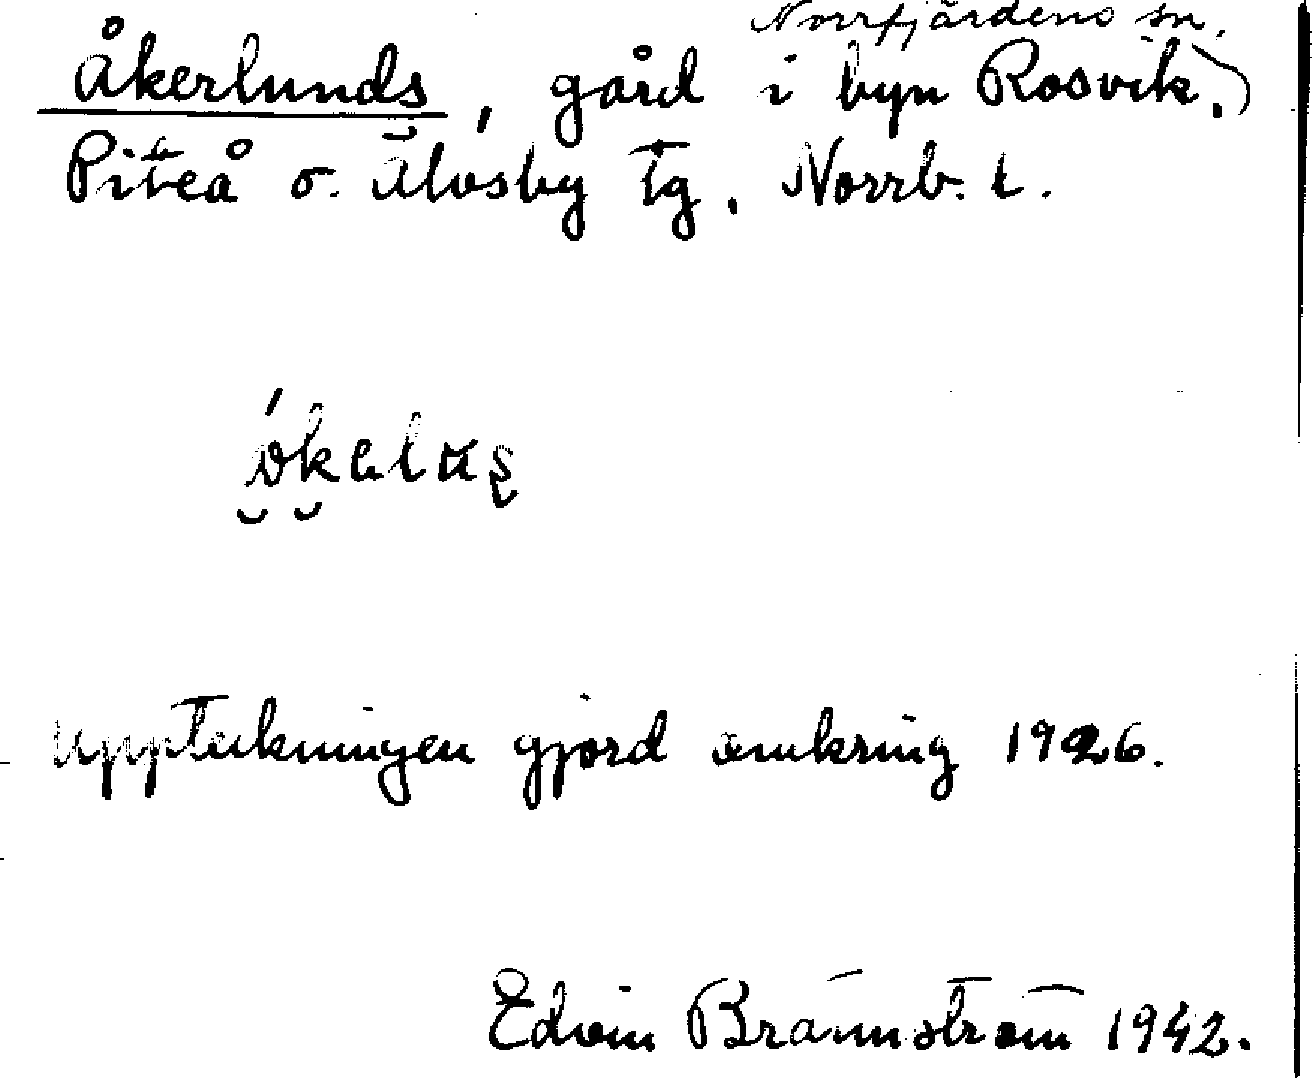 Norrfjärdens sn.
Åkerlunds, gård i byn Rosvik,
Piteå o. Älvsby tg, Norrb. l.
Uppteckningen gjord omkring 1926.
Edvin Brännström 1942.